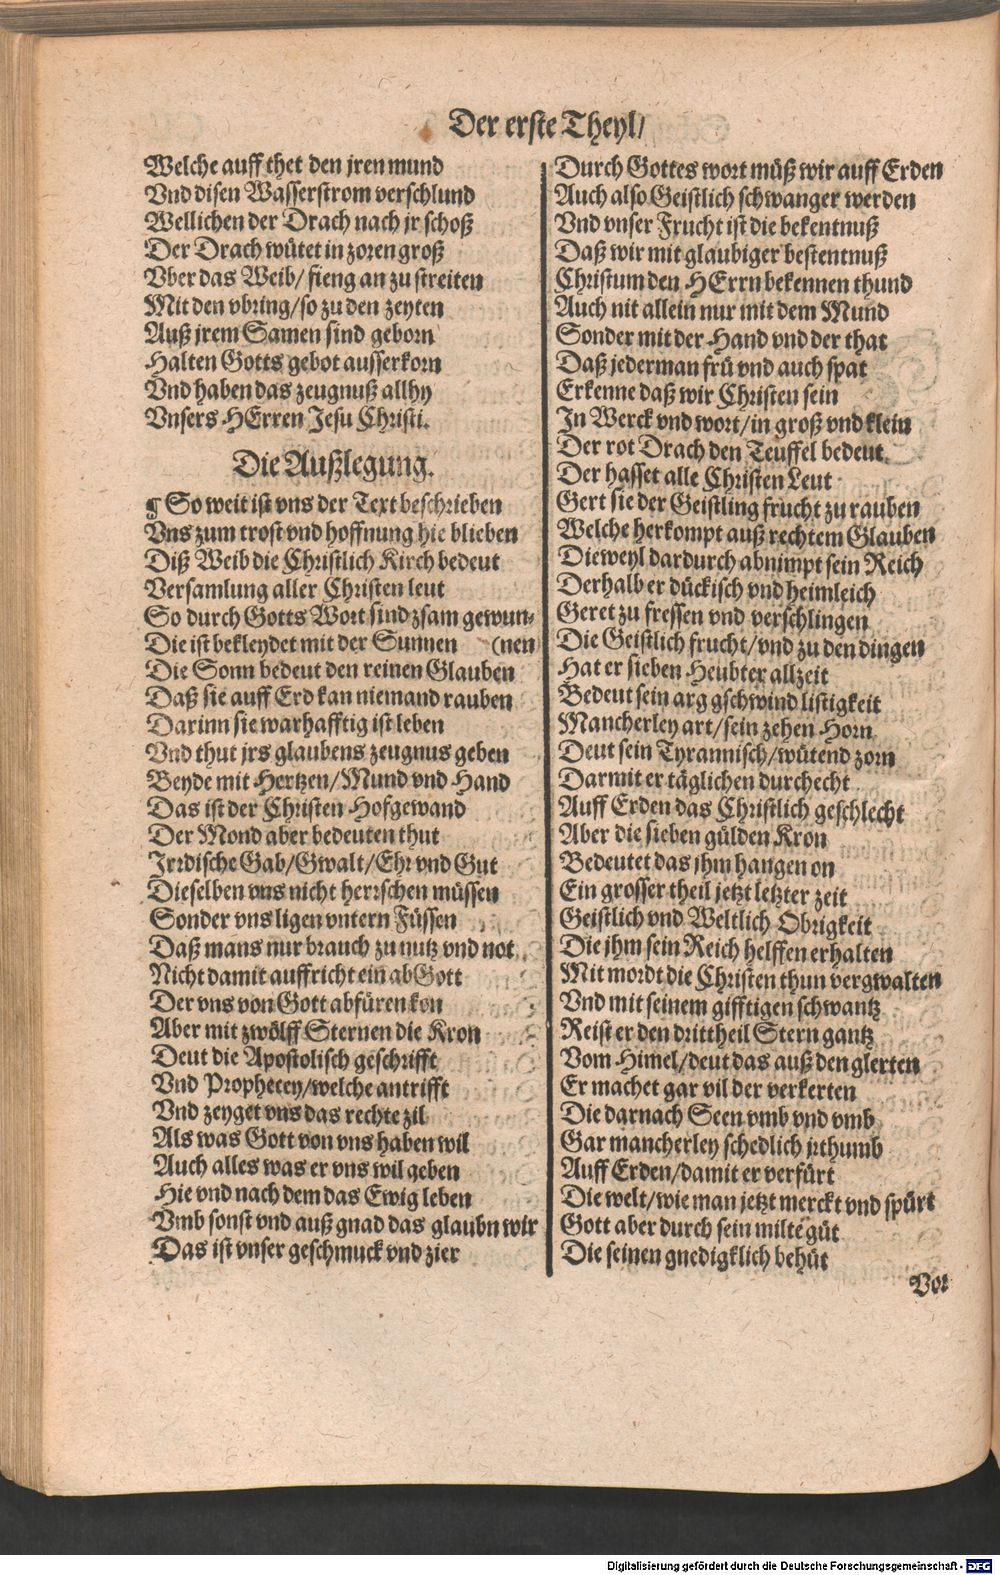 Der erste Theyl/
Welche auff thet den jren mund
Vnd disen Wasserstrom verschlund
Wellichen der Drach nach jr schoß
Der Drach wütet in zoren groß
Vber das Weib/ fieng an zu streiten
Mit den vbring/ so zu den zeyten
Auß jrem Samen sind geborn
Halten Gotts gebot ausserkorn
Vnd haben das zeugnuß allhy
Vnsers HErren Jesu Christi.
Die Außlegung.
¶ So weit ist vns der Text beschrieben
Vns zum trost vnd hoffnung hie blieben
Diß Weib die Christlich Kirch bedeut
Versamlung aller Christen leut
So durch Gotts Wort sind zsam gewun-
Die ist bekleydet mit der Sunnen (nen
Die Sonn bedeut den reinen Glauben
Daß sie auff Erd kan niemand rauben
Darinn sie warhafftig ist leben
Vnd thut jrs glaubens zeugnus geben
Beyde mit Hertzen/ Mund vnd Hand
Das ist der Christen Hofgewand
Der Mond aber bedeuten thut
Irrdische Gab/ Gwalt/ Ehr vnd Gut
Dieselben vns nicht herrschen müssen
Sonder vns ligen vntern Füssen
Daß mans nur brauch zu nutz vnd not
Nicht damit auffricht ein abGott
Der vns von Gott abfüren kon
Aber mit zwölff Sternen die Kron
Deut die Apostolisch geschrifft
Vnd Prophecey/ welche antrifft
Vnd zeyget vns das rechte zil
Als was Gott von vns haben wil
Auch alles was er vns wil geben
Hie vnd nach dem das Ewig leben
Vmb sonst vnd auß gnad das glaubn wir
Das ist vnser geschmuck vnd zier
Durch Gottes wort müß wir auff Erden
Auch also Geistlich schwanger werden
Vnd vnser Frucht ist die bekentnuß
Daß wir mit glaubiger bestentnuß
Christum den HErrn bekennen thund
Auch nit allein nur mit dem Mund
Sonder mit der Hand vnd der that
Daß jederman frü vnd auch spat
Erkenne daß wir Christen sein
In Werck vnd wort/ in groß vnd klein
Der rot Drach den Teuffel bedeut
Der hasset alle Christen Leut
Gert sie der Geistling frucht zu rauben
Welche herkompt auß rechtem Glauben
Dieweyl dardurch abnimpt sein Reich
Derhalb er dückisch vnd heimleich
Geret zu fressen vnd verschlingen
Die Geistlich frucht/ vnd zu den dingen
Hat er sieben Heubter allzeit
Bedeut sein arg gschwind listigkeit
Mancherley art/ sein zehen Horn
Deut sein Tyrannisch/ wütend zorn
Darmit er täglichen durchecht
Auff Erden das Christlich geschlecht
Aber die sieben gülden Kron
Bedeutet das jhm hangen on
Ein grosser theil jetzt letzter zeit
Geistlich vnd Weltlich Obrigkeit
Die jhm sein Reich helffen erhalten
Mit mordt die Christen thun vergwalten
Vnd mit seinem gifftigen schwantz
Reist er den drittheil Stern gantz
Vom Himel/ deut das auß den glerten
Er machet gar vil der verkerten
Die darnach Seen vmb vnd vmb
Gar mancherley schedlich jrthumb
Auff Erden/ damit er verfürt
Die welt/ wie man jetzt merckt vnd spürt
Gott aber durch sein milte güt
Die seinen gnedigklich behüt
Vor
Digitalisierung gefördert durch die Deutsche Forschungsgemeinschaft - DFG